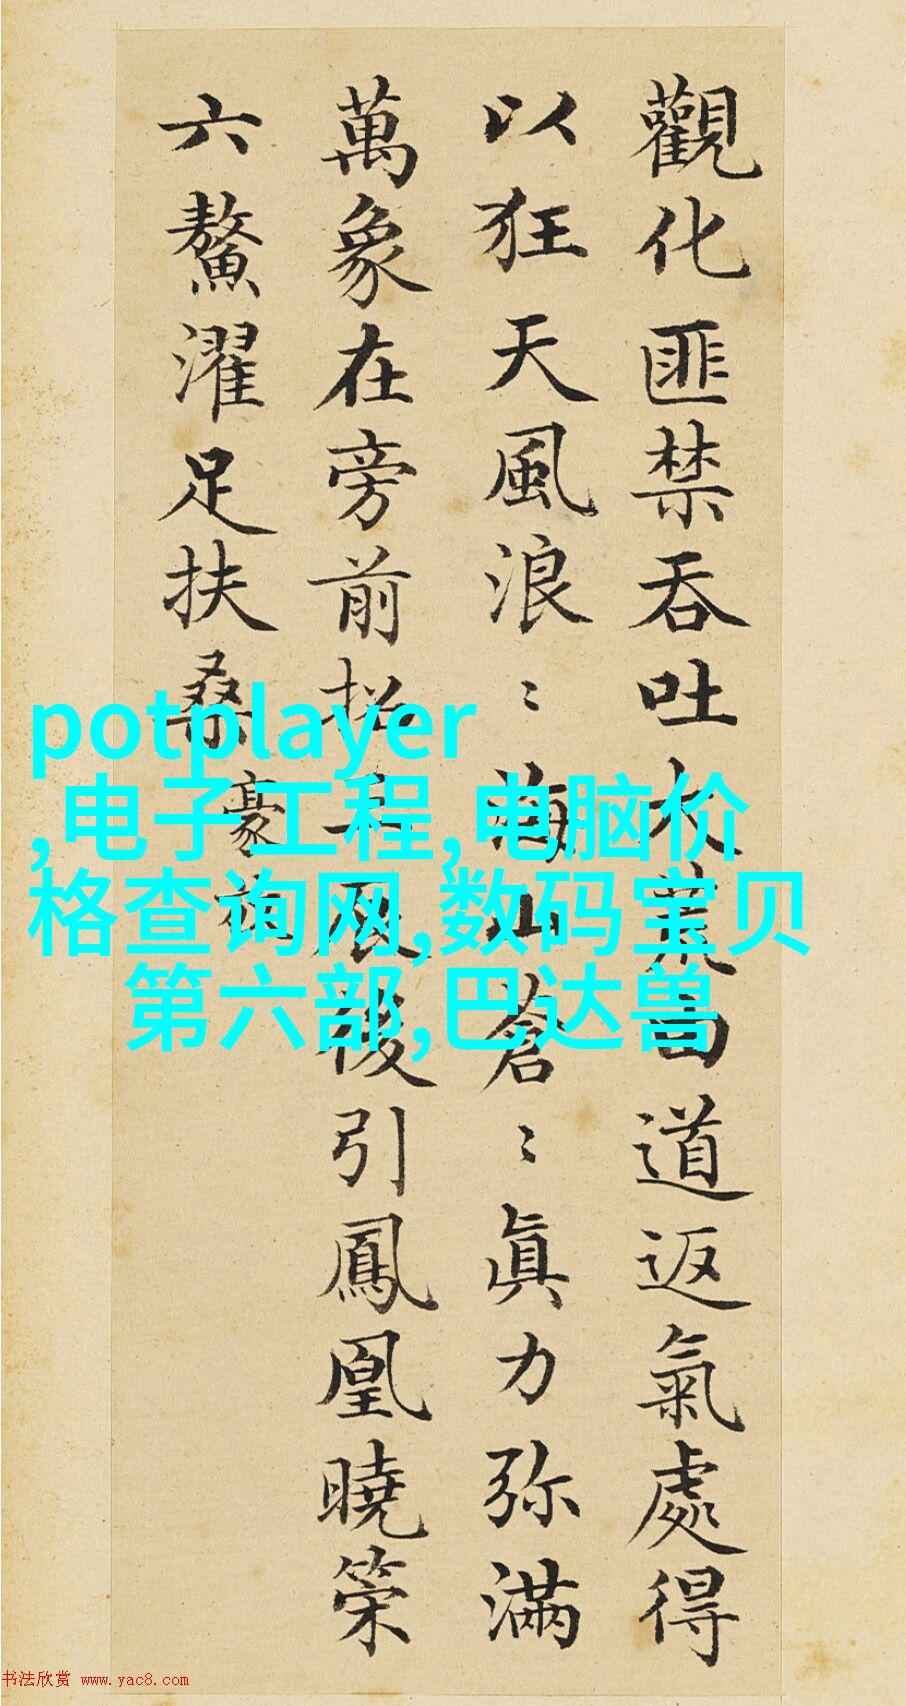 觀化匪禁吞吐大荒由道返氣處得
以狂天風浪〻海山蒼〻真力弥滿
萬象在旁前招三辰後引鳳凰曉策
六鰲濯足扶桑
豪放
potplayer
,电子工程,电脑价
格查询网,数码宝贝
第六部,巴达兽
书法欣赏 www.yac8.com